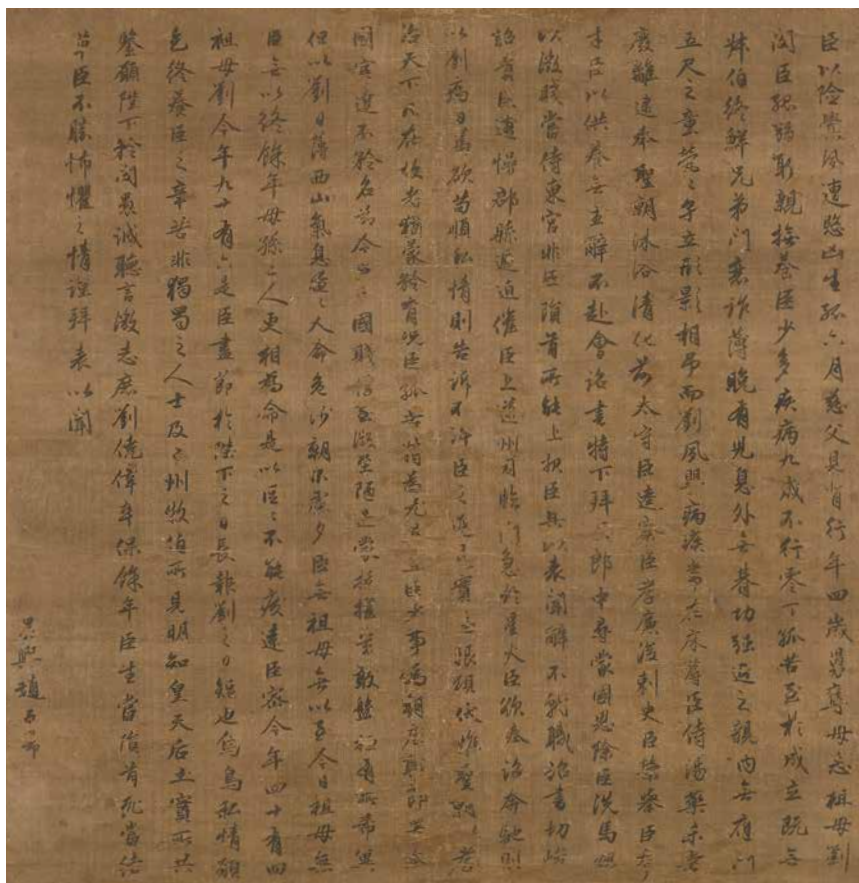 臣以險釁夙遭愍凶生孤六月慈父見背行年四歲舅奪母志祖母劉
閔臣孤弱躬親撫養臣少多疾病九歲不行零丁孤苦至於成立既無
叔伯終鮮兄弟門衰祚薄晚有兒息外無朞功強近之親內無應門
五尺之童煢〻孑立形影相弔而劉夙嬰病疾常在床蓐臣侍湯藥未嘗
廢離逮奉聖朝沐浴清化前太守臣逵察臣孝廉後刺史臣榮舉臣秀
才臣以供養無主辭不赴會詔書特下拜臣郎中尋蒙國恩除臣洗馬猥
以微賤當侍東宮非臣隕首所能上報臣具以表聞辭不就職詔書切峻
詔責臣逋慢郡縣逼迫催臣上道州司臨門急於星火臣欲奉詔奔馳則
以劉病日篤欲苟順私情則告訴不許臣之進退實為狼狽伏惟聖朝以孝
治天下凡在故老猶蒙矜育況臣孤苦特為尤甚且臣少事偽朝歷職郎署本
圖宦達不矜名節今臣亡國賤俘至微至陋過蒙拔擢豈敢盤桓有所希冀
但以劉日薄西山氣息奄〻人命危淺朝不慮夕臣無祖母無以至今日祖母無
臣無以終餘年母孫二人更相為命是以區〻不能廢遠臣密今年四十有四
祖母劉今年九十有六是臣盡節於陛下之日長報劉之日短也烏鳥私情願
乞終養臣之辛苦非獨蜀之人士及二州牧伯所見明知皇天后土實所共
鑒願陛下矜閔愚誠聽臣微志庶劉僥倖卒保餘年臣生當隕首死當結
草臣不勝怖懼之情謹拜表以聞
吳興趙